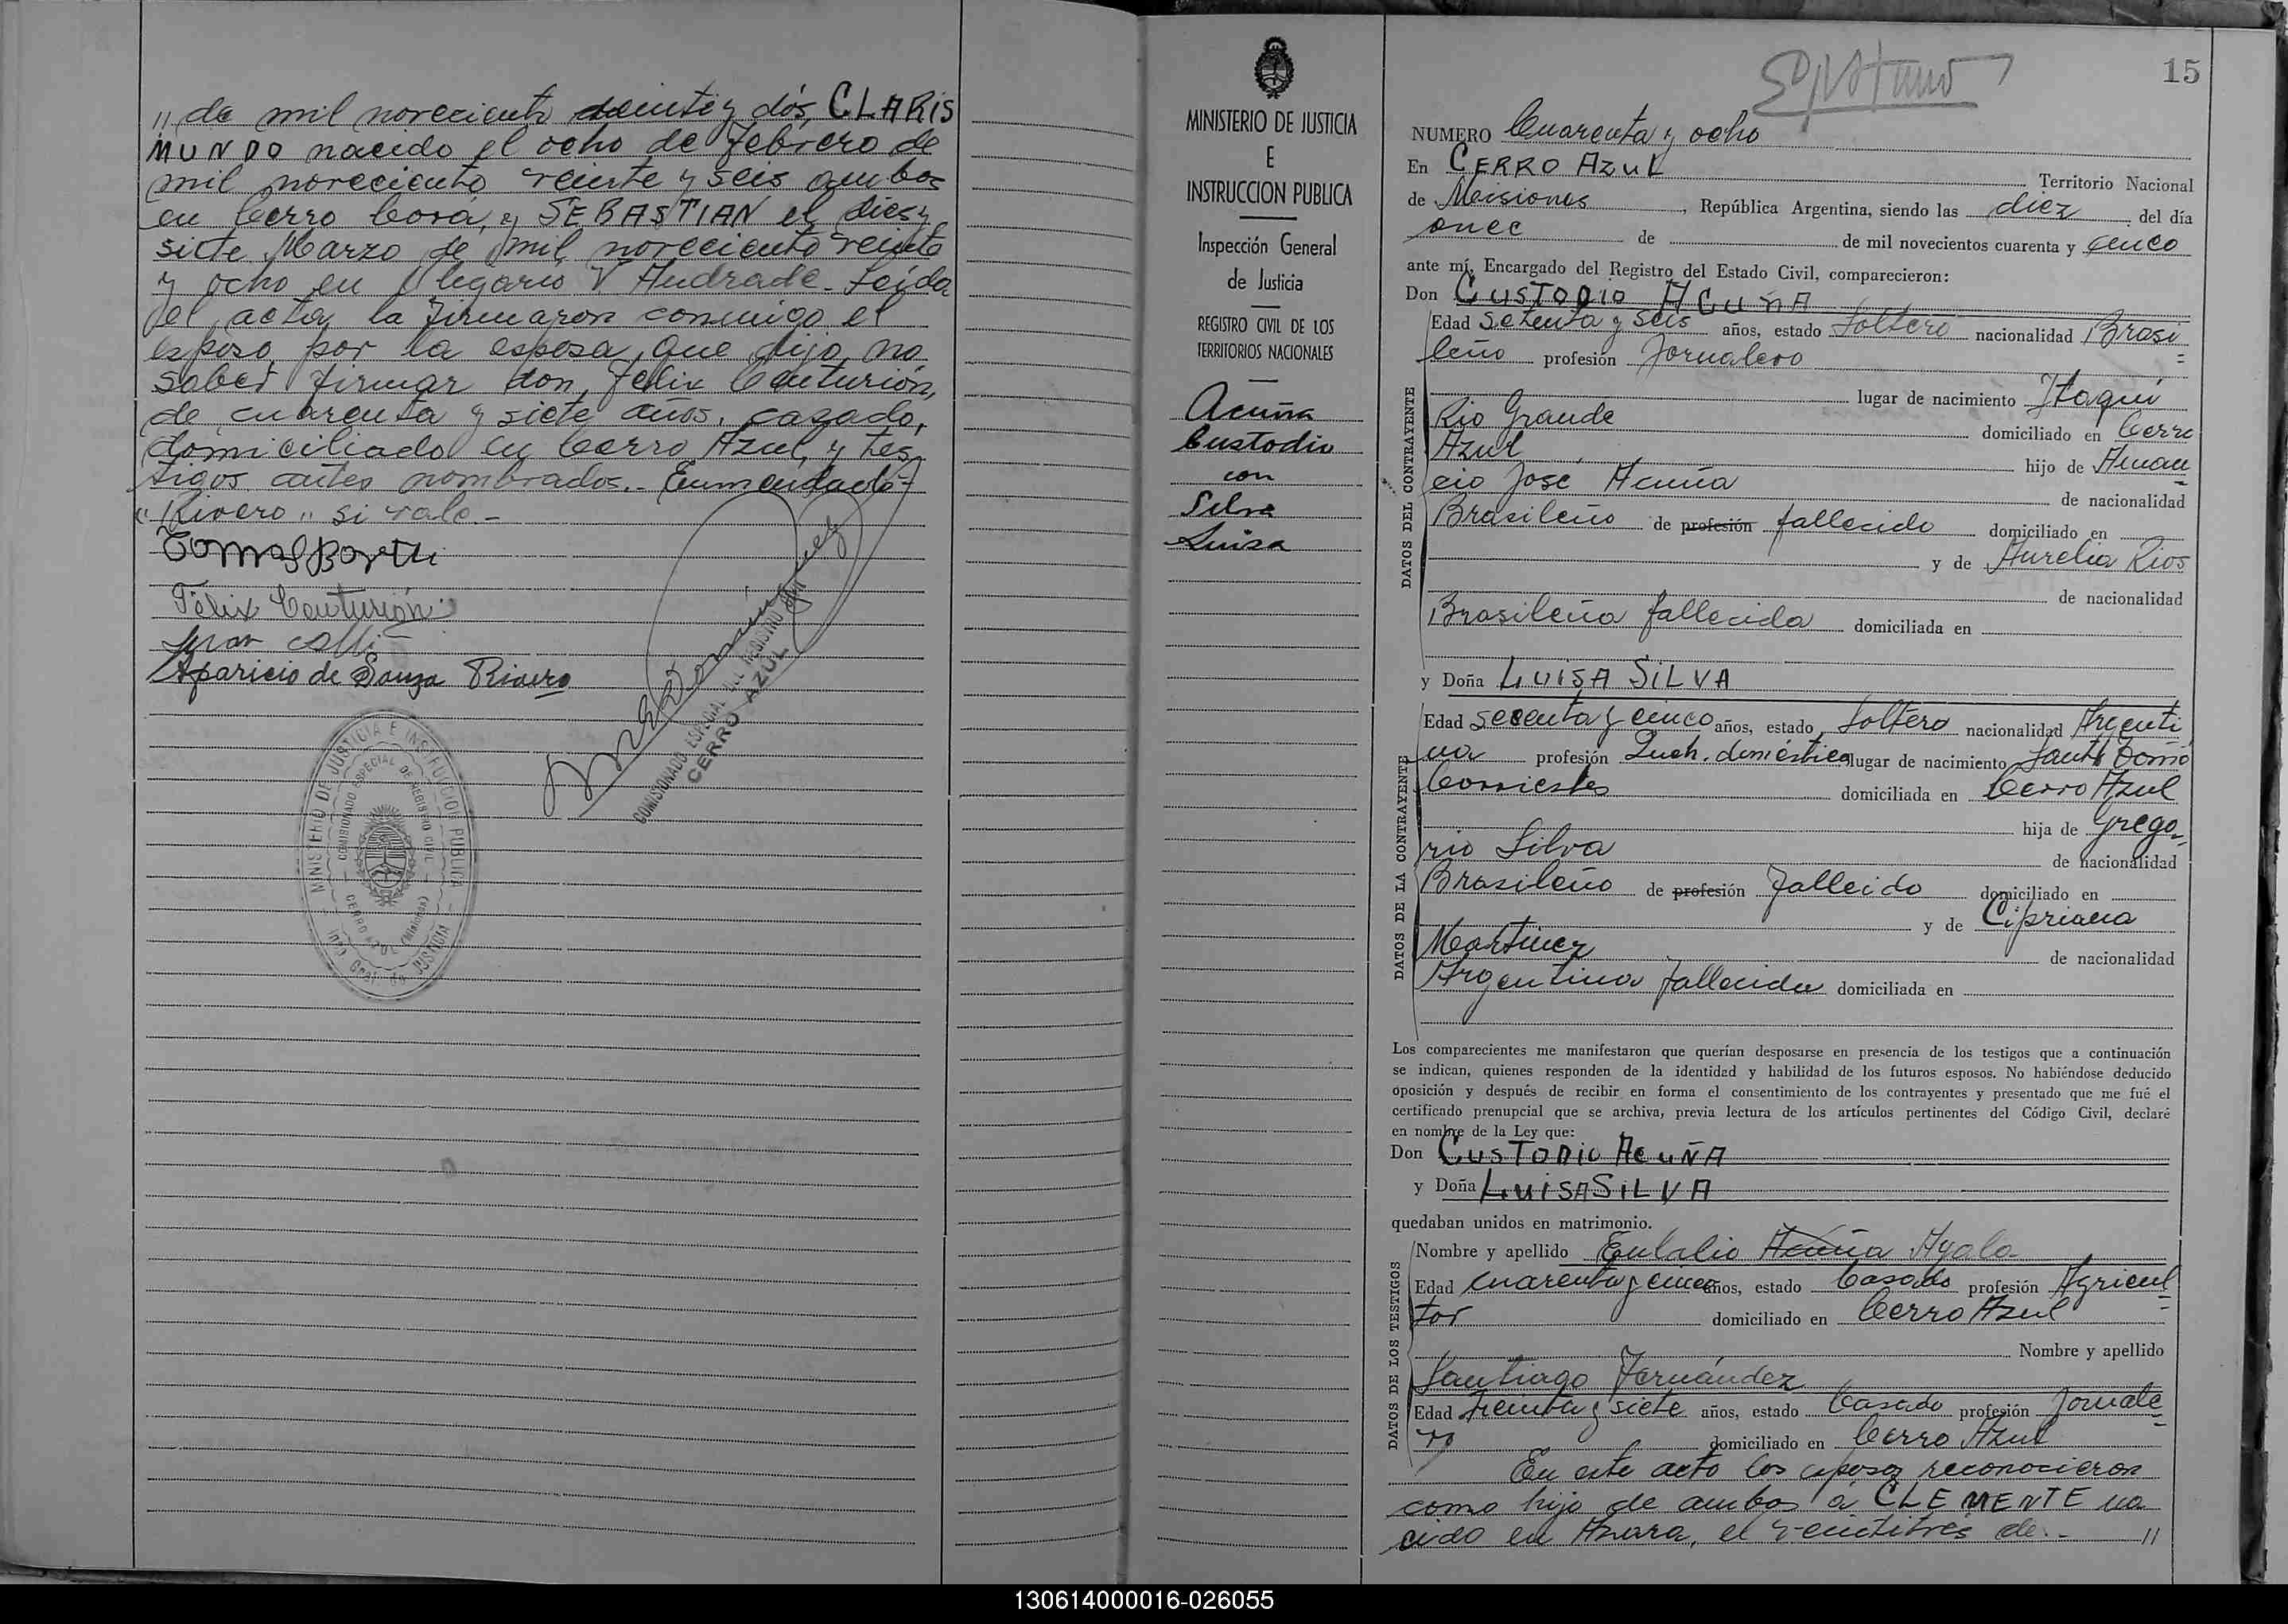 " de mil noveciento veinte y dós, CLARIS
MUNDO nacido el ocho de Febrero de
mil noveciento veinte y seis ambos
en Cerro Corá, y SEBASTIAN el dies y
siete Marzo de mil noveciento veinte
y ocho en Olegario V Andrade. Leída
el acta, la firmaron conmigo el
esposo, por la esposa, que dijo no
saber firmar don, Felix Centurión,
de cuarenta y siete años, casado,
domiciliado en Cerro Azul, y tes
tigos antes nombrados.- Enmendado-
"Rivero" si vale.-
Felix Centurión
Aparicio de Souza Rivero
COMISIONADO ESPECIAL DEL REGISTRO CIVIL
CERRO AZUL
MINISTERIO DE JUSTICIA E INSTRUCCION PUBLICA
COMISIONADO ESPECIAL DE REGISTRO CIVIL
CERRO AZUL (Misiones)
Insp. Gral. de JUSTICIA
MINISTERIO DE JUSTICIA
E
INSTRUCCION PUBLICA
Inspección General
de Justicia
REGISTRO CIVIL DE LOS
TERRITORIOS NACIONALES
Acuña
Custodio
con
Silva
Luisa
15
NUMERO Cuarenta y ocho
En CERRO AZUL Territorio Nacional
de Misiones, República Argentina, siendo las diez del día
once de de mil novecientos cuarenta y cinco
ante mí, Encargado del Registro del Estado Civil, comparecieron:
Don CUSTODIO ACUÑA
Edad Setenta y seis años, estado Soltero nacionalidad Brasi
leño profesión Jornalero
lugar de nacimiento Itaquí
Rio Grande domiciliado en Cerro
Azul hijo de Aman
cio José Acuña de nacionalidad
Brasileño de profesión fallecido domiciliado en
y de Aurelia Rios
de nacionalidad
Brasileña fallecida domiciliada en
y Doña LUISA SILVA
Edad sesenta y cinco años, estado Soltera nacionalidad Argenti
na profesión Queh. doméstica lugar de nacimiento Santo Tomé
Corrientes domiciliada en Cerro Azul
hija de Grego-
rio Silva de nacionalidad
Brasileño de profesión Fallecido domiciliado en
y de Cipriana
Martinez de nacionalidad
Argentina fallecida domiciliada en
DATOS DEL CONTRAYENTE
DATOS DE LA CONTRAYENTE
Los comparecientes me manifestaron que querían desposarse en presencia de los testigos que a continuación
se indican, quienes responden de la identidad y habilidad de los futuros esposos. No habiéndose deducido
oposición y después de recibir en forma el consentimiento de los contrayentes y presentado que me fué el
certificado prenupcial que se archiva, previa lectura de los artículos pertinentes del Código Civil, declaré
en nombre de la Ley que:
Don CUSTODIO ACUÑA
y Doña LUISA SILVA
quedaban unidos en matrimonio.
DATOS DE LOS TESTIGOS
Nombre y apellido Eulalio Acuña Ayala
Edad cuarenta y cinco años, estado Casado profesión Agricul
tor domiciliado en Cerro Azul
Nombre y apellido
Santiago Fernández
Edad Treinta y siete años, estado Casado profesión Jornale
ro domiciliado en Cerro Azul
En este acto los esposos reconocieron
como hijo de ambos a CLEMENTE na
cido en Azara, el veintitres de.- "
130614000016-026055